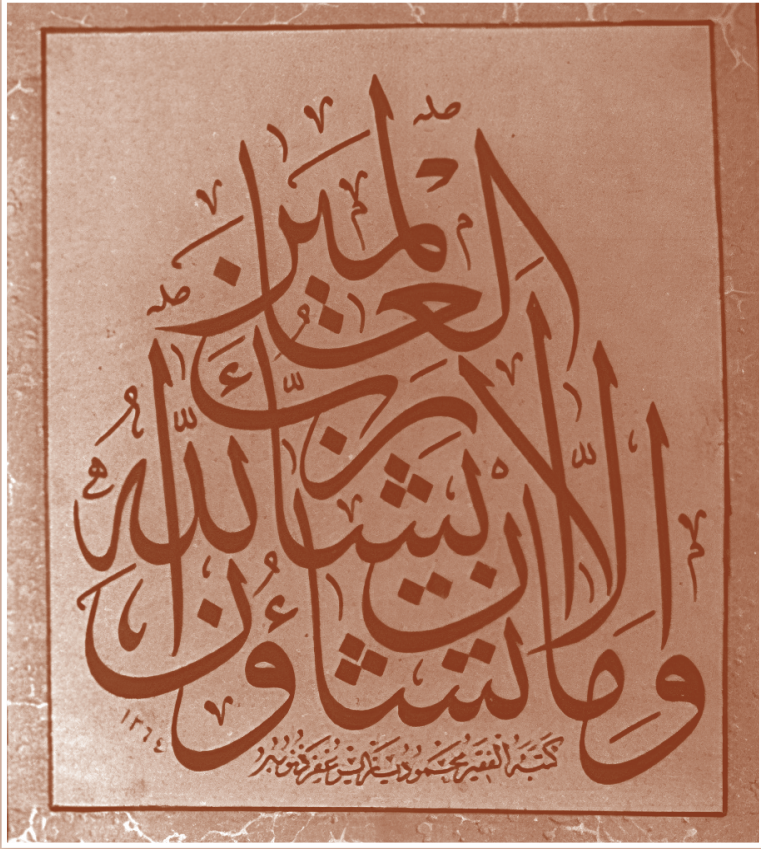 وَمَا تَشَاؤُنَ إِلَّا أَنْ يَشَاءَ اللَّهُ رَبُّ الْعَالَمِينَ
كتبه الفقير محمود يازير غفر ذنوبه
١٣٦٤